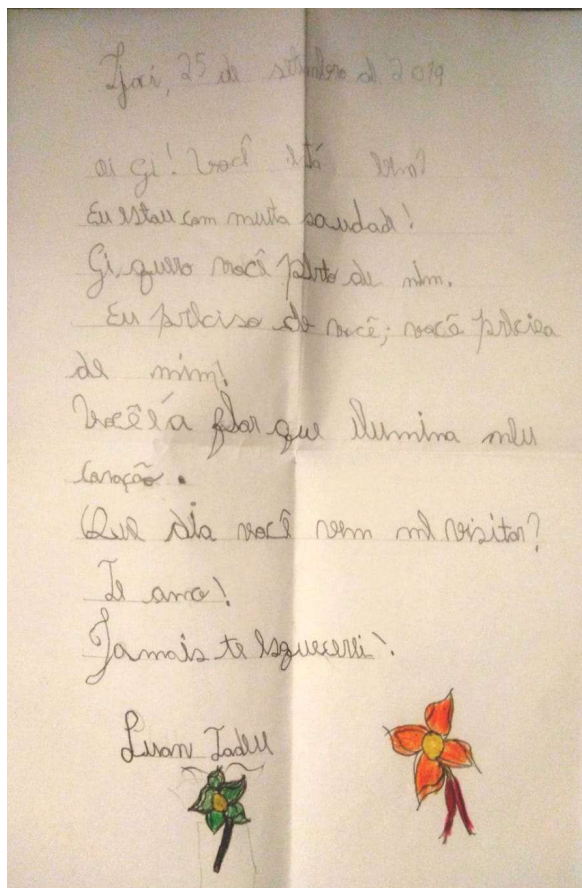 Ijuí, 25 de setembro de 2019
Oi Gi! Você está bem?
Eu estou com muita saudade!
Gi, quero você perto de mim.
Eu preciso de você; você precisa
de mim!
Você é a flor que ilumina meu
coração.
Que dia você vem me visitar?
Te amo!
Jamais te esquecerei!
Luan Tadeu